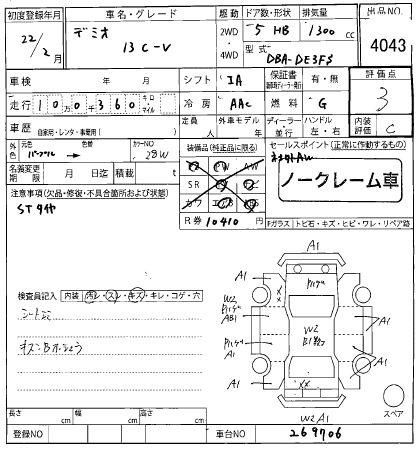 初度登録年月
車名・グレード
駆動
ドア数・形状
排気量
出品NO
22/2月
デミオ
13 C-V
2WD
・
4WD
5 HB
1300 cc
型式
DBA-DE3FS
4043
車検
年 月
シフト
IA
保証書
有・無
評価点
3
走行
10万0千360
キロ
マイル
冷房
AAC
燃料
G
車歴
自家用・レンタ・事業用( )
定員
人
外車モデル
年
ディーラー
並行
ハンドル
左・右
内装評価
C
外色
元色
パープル
色替
カラーNO
28W
装備品(純正品に限る)
セールスポイント(正常に作動するもの)
名義変更期限
月 日迄
積載
t
AW
SR
カワ
R券
10410
円
ノークレーム車
Fガラス
トビ石・キズ・ヒビ・ワレ・リペア跡
注意事項(欠品・修復・不具合箇所および状態)
STタヤ
検査員記入
内装
汚レ・スレ・キズ・キレ・コゲ・穴
シートシミ
A1
A1
A1
W2
A1
W2
A1
A1
A1
W2 A1
スペア
長さ
cm
幅
cm
高さ
cm
登録NO
車台NO
269706